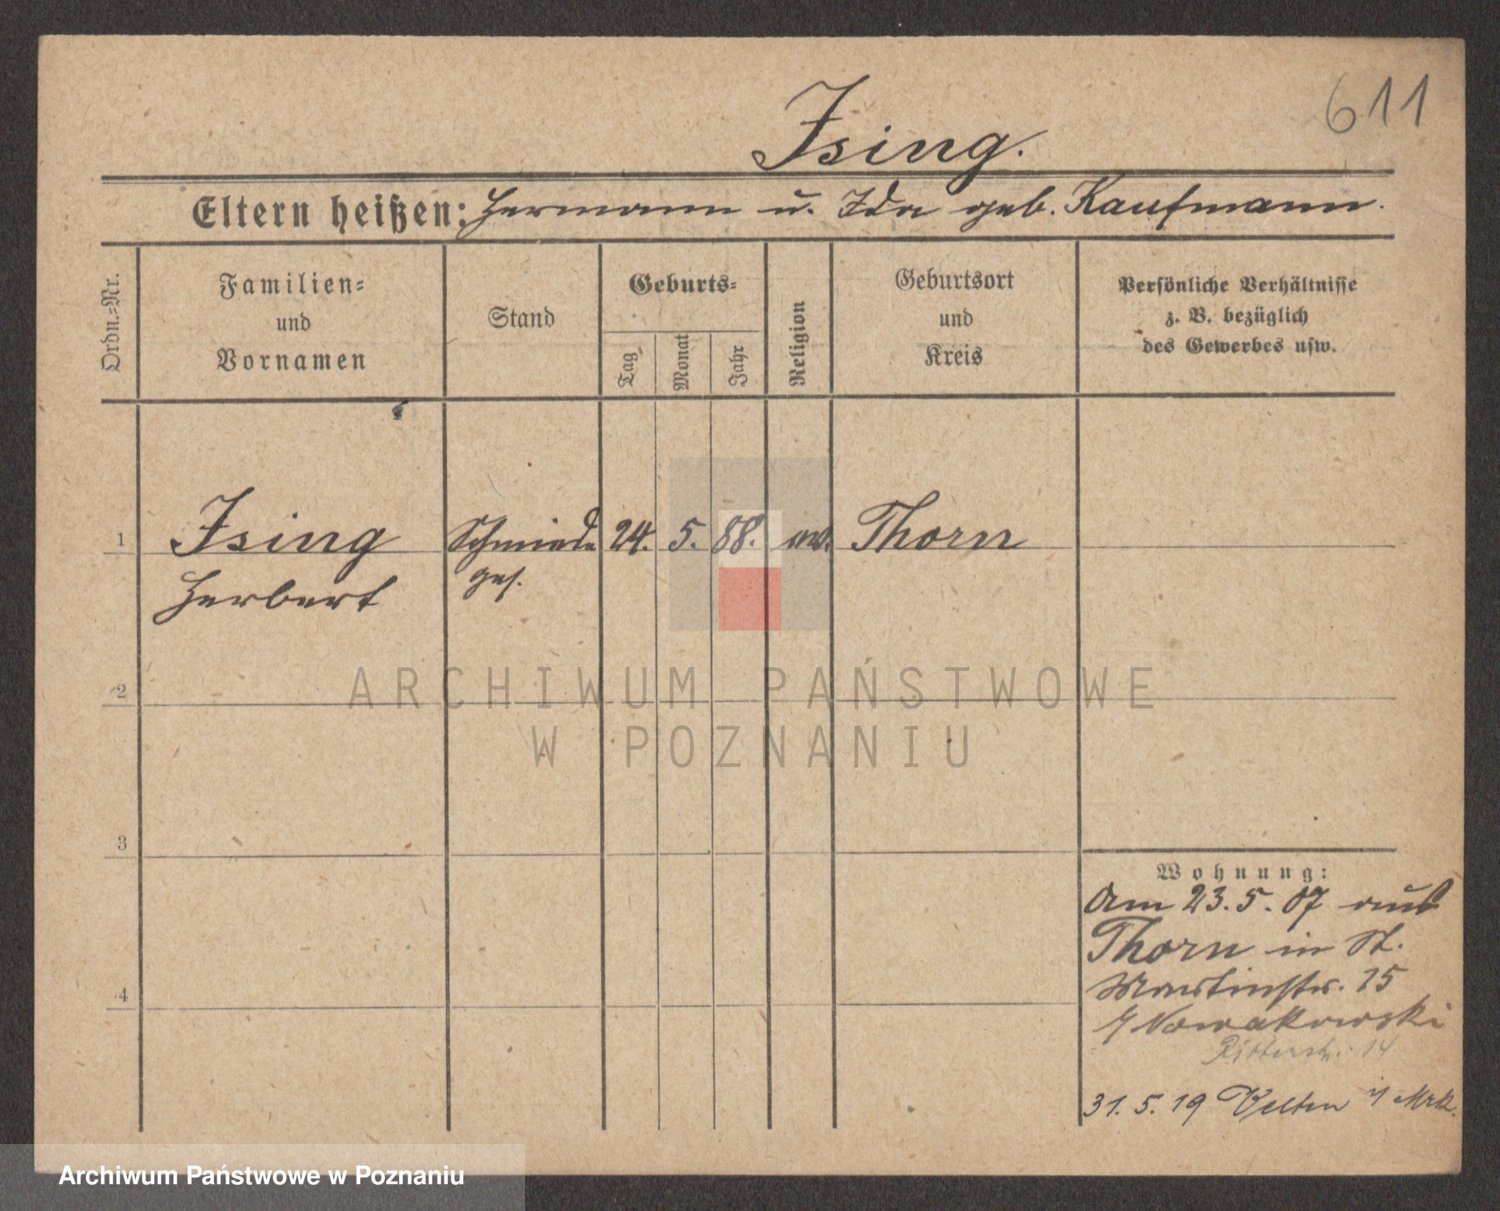 611
Ising.
Eltern heißen: Hermann u. Ida geb. Kaufmann.
Ordn.=Nr.
Familien=
und
Vornamen
Stand
Geburts=
Tag
Monat
Jahr
Religion
Geburtsort
und
Kreis
Persönliche Verhältnisse
z. B. bezüglich
des Gewerbes usw.
1 Ising Schmiede 24. 5. 88. ev. Thorn
Herbert ges.
ARCHIWUM PAŃSTWOWE
2
W POZNANIU
3
Wohnung:
Am 23.5.07 aus
Thorn in St.
4
Martinstr. 15
b/ Nowakowski
Ritterstr. 14
31.5.19 Velten i/ Mrk.
Archiwum Państwowe w Poznaniu